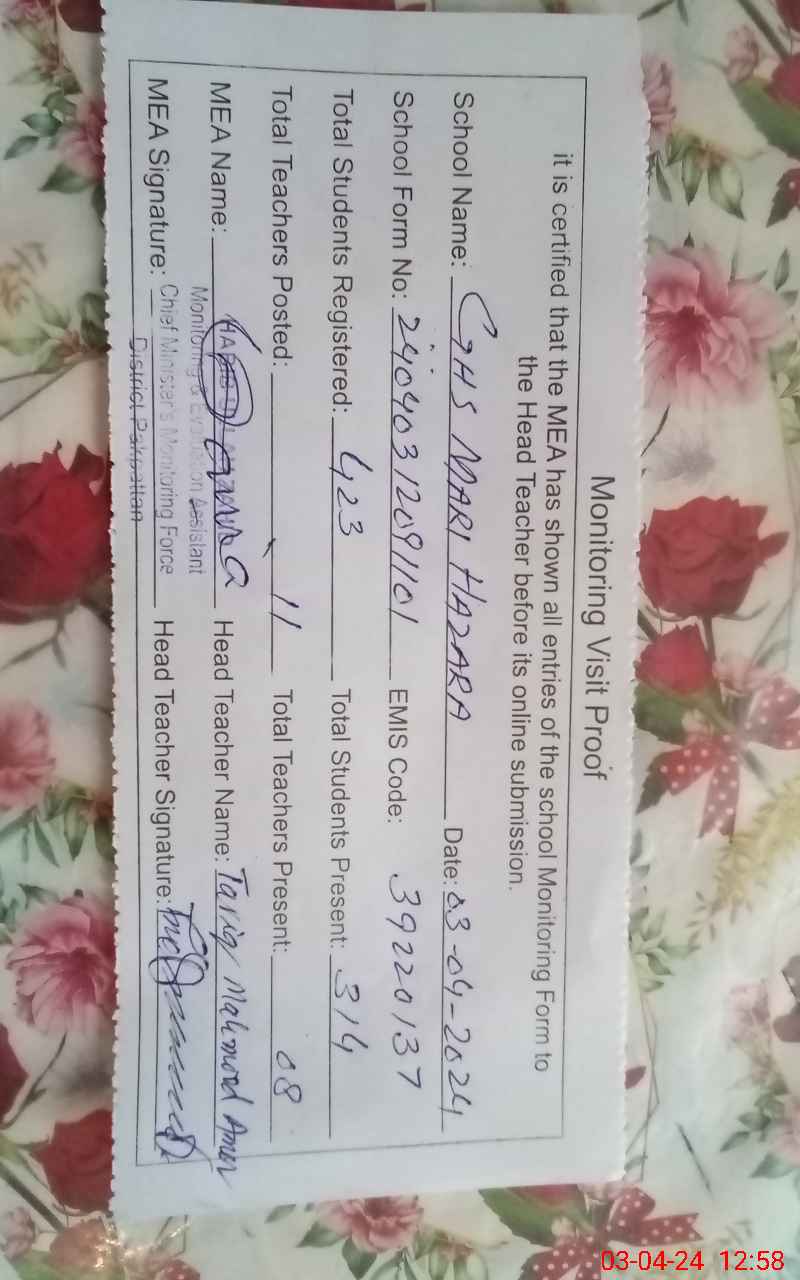 Monitoring Visit Proof
it is certified that the MEA has shown all entries of the school Monitoring Form to
the Head Teacher before its online submission.
School Name: GHS MARI HAZARA Date: 03-04-2024
School Form No: 24040312091101 EMIS Code: 39220137
Total Students Registered: 423 Total Students Present: 314
Total Teachers Posted: 11 Total Teachers Present: 08
MEA Name: Head Teacher Name: Tariq Mahmood
Monitoring & Evaluation Assistant
MEA Signature: Chief Minister's Monitoring Force Head Teacher Signature:
District Pakpattan
03-04-24 12:58